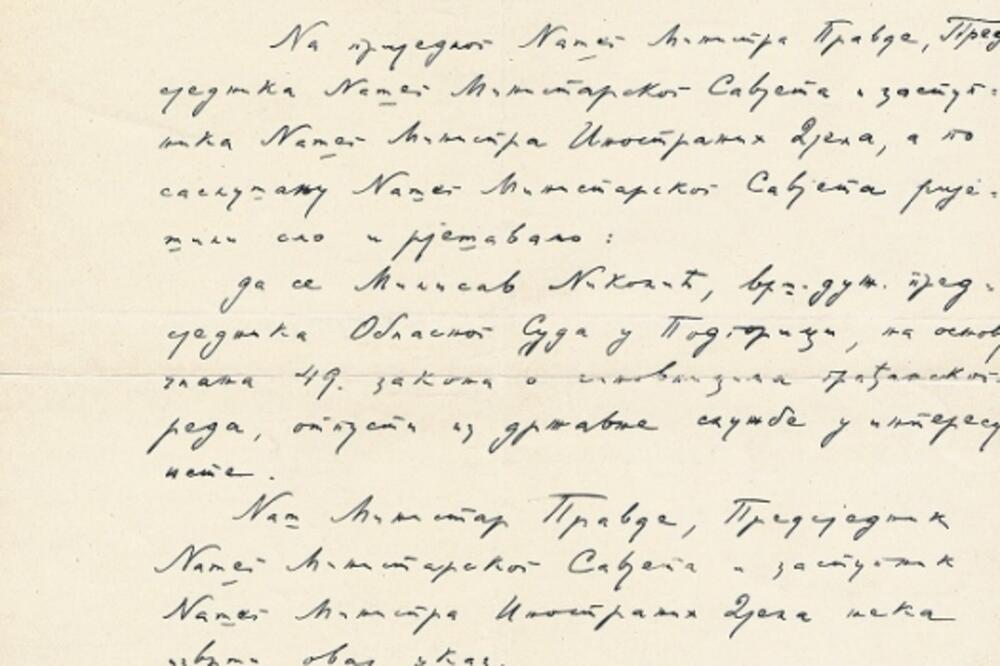 На приједлог Нашег Министра Правде, Пред
сједника Нашег Министарског Савјета и заступ-
ника Нашег Министра Иностраних Дјела, а по
саслушању Нашег Министарског Савјета рије-
шили смо и рјешавамо:
да се Милисав Николић, врш. дуж. пред-
сједника Обласног Суда у Подгорици, на основ
члана 49. закона о чиновницима грађанског
реда, отпусти из државне службе у интересу
исте.
Наш Министар Правде, Предсједник
Нашег Министарског Савјета и заступник
Нашег Министра Иностраних Дјела нека
изврши овај указ.